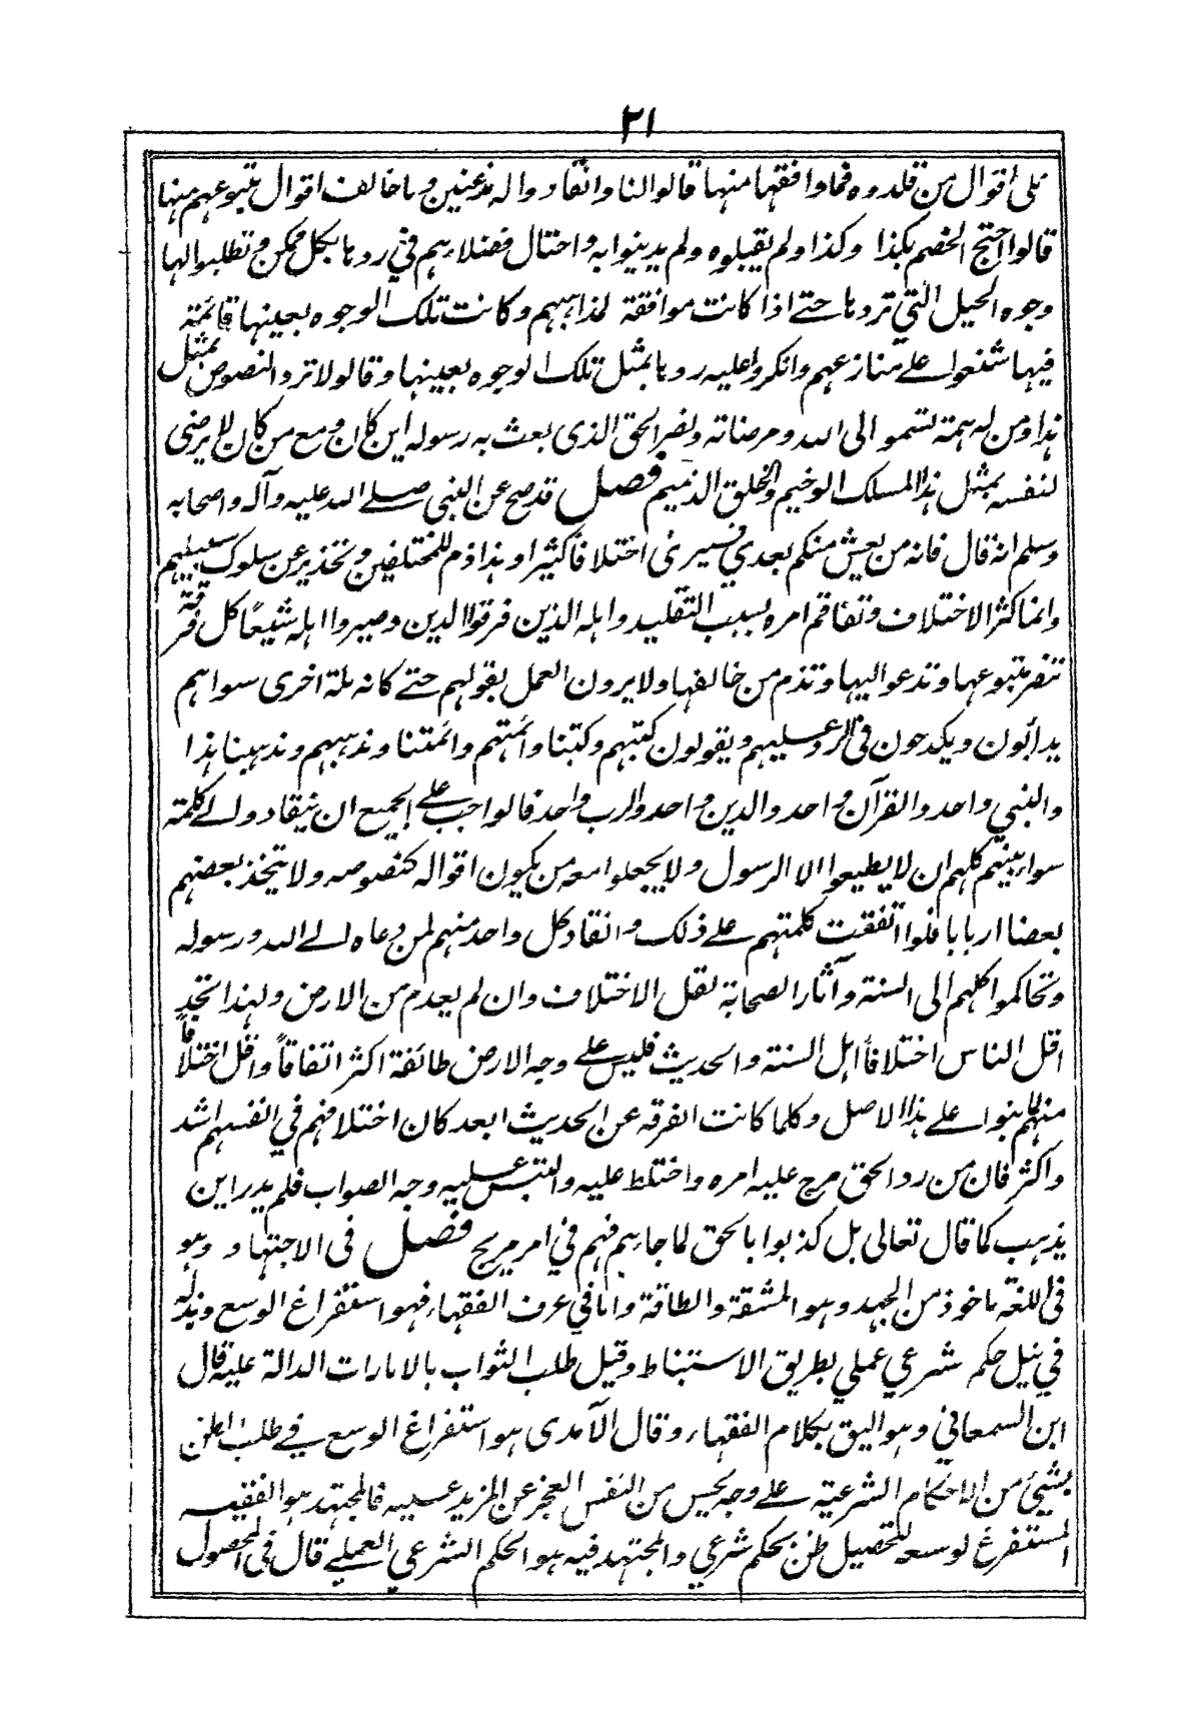 ٢١
على اقوال من قلدوه فما وافقها منها قالوا لنا وانقادوا له مذعنين وما خالف اقوال متبوعهم منها
قالوا احتج الخصم بكذا وكذا ولم يقبلوه ولم يدينوا به واحتال فضلاءهم في ردها بكل ممكن وتطلبوا لها
وجوه الحيل التي تردها حتى اذا كانت موافقة لمذاهبهم وكانت تلك الوجوه بعينها قائمة
فيها شنعوا على منازعهم وانكروا عليه ردها بمثل تلك الوجوه بعينها وقالوا لا ترد النصوص بمثل
هذا ومن له همة تسمو الى الله ومرضاته ونصر الحق الذي بعث به رسوله اين كان ومع من كان لا يرضى
لنفسه بمثل هذا المسلك الوخيم والخلق الذميم فصل قد صح عن النبي صلى الله عليه وآله واصحابه
وسلم انه قال فانه من يعش منكم بعدي فسيرى اختلافاً كثيرا وهذا ذم للمختلفين وتحذير عن سلوك سبيلهم
وانما كثر الاختلاف وتفاقم امره بسبب التقليد واهله الذين فرقوا الدين وصيروا اهله شيعًا كل فرقة
تنصر متبوعها وتدعو اليها وتذم من خالفها ولا يرون العمل بقولهم حتى كانه ملة اخرى سواهم
يدأبون ويكدحون في الرد عليهم ويقولون كتبهم وكتبنا وائمتهم وائمتنا ومذهبهم ومذهبنا هذا
والنبي واحد والقرآن واحد والدين واحد والرب واحد فالواجب على الجميع ان ينقادوا الى كلمة
سواء بينهم كلهم ان لا يطيعوا الا الرسول ولا يجعلوا معه من يكون اقواله كنصوصه ولا يتخذ بعضهم
بعضا اربابا فلو اتفقت كلمتهم على ذلك وانقاد كل واحد منهم لمن دعاه الى الله ورسوله
وتحاكموا كلهم الى السنة وآثار الصحابة لقل الاختلاف وان لم يعدم من الارض ولهذا تجد
اقل الناس اختلافاً اهل السنة والحديث فليس على وجه الارض طائفة اكثر اتفاقاً واقل اختلافاً
منهم لما بنوا على هذا الاصل وكلما كانت الفرقه عن الحديث ابعد كان اختلافهم في انفسهم اشد
واكثر فان من رد الحق مرج عليه امره واختلط عليه والتبس عليه وجه الصواب فلم يدر اين
يذهب كما قال تعالى بل كذبوا بالحق لما جاءهم فهم في امر مريج فصل في الاجتهاد وهو
في اللغة ماخوذ من الجهد وهو المشقة والطاقة واما في عرف الفقهاء فهو استفراغ الوسع وبذله
في نيل حكم شرعي عملي بطريق الاستنباط وقيل طلب الثواب بالامارات الدالة عليه قال
ابن السمعاني وهو اليق بكلام الفقهاء وقال الآمدى هو استفراغ الوسع في طلب الظن
بشيئ من الاحكام الشرعية على وجه يحس من النفس العجز عن المزيد عليه فالمجتهد هو الفقيه
المستفرغ لوسعه لتحصيل ظن بحكم شرعي والمجتهد فيه هو الحكم الشرعي العملي قال في المحصول